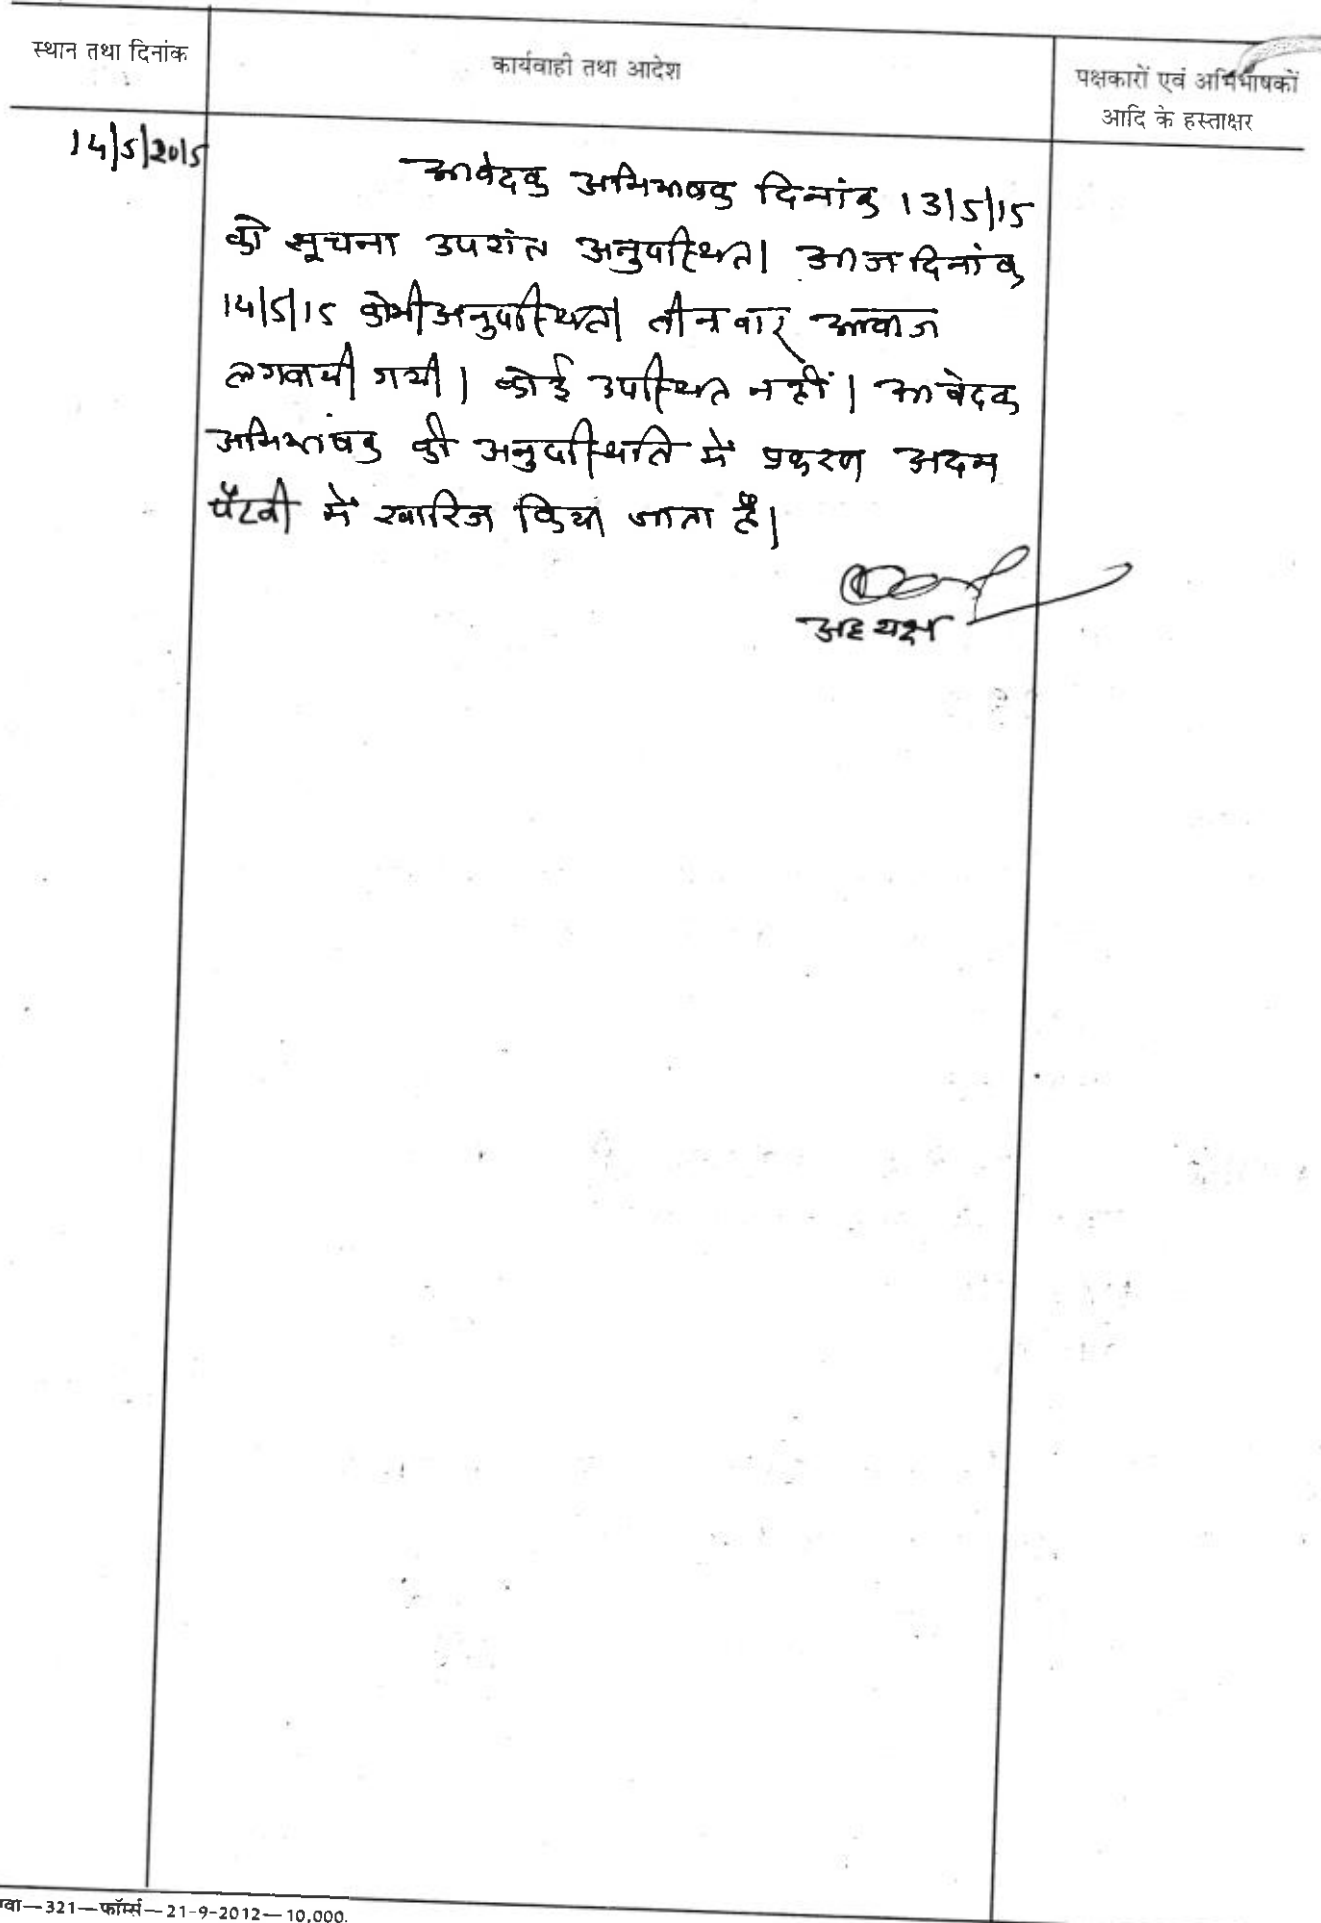 स्थान तथा दिनांक
कार्यवाही तथा आदेश
पक्षकारों एवं अभिभाषकों
आदि के हस्ताक्षर
14/5/2015
आवेदक अभिभाषक दिनांक 13/5/15
को सूचना उपरांत अनुपस्थित। आज दिनांक
14/5/15 को भी अनुपस्थित। तीन बार आवाज
लगवायी गयी। कोई उपस्थित नहीं। आवेदक
अभिभाषक की अनुपस्थिति में प्रकरण अदम
पैरवी में खारिज किया जाता है।
अध्यक्ष
—321—फॉर्म्स—21-9-2012—10,000.